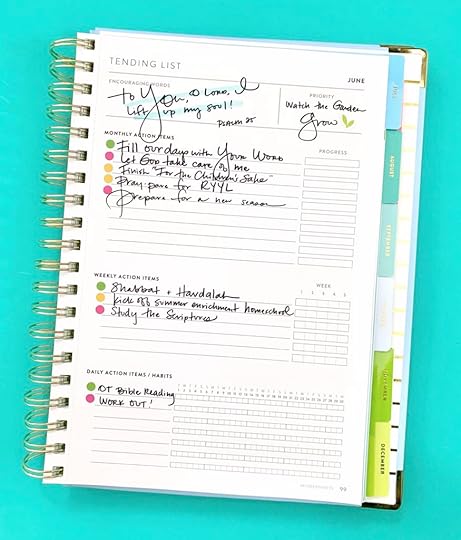 TENDING LIST
JUNE
ENCOURAGING WORDS
To You, O LORD, I
lift up my soul!
PSALM 25
PRIORITY
Watch the Garden
grow
MONTHLY ACTION ITEMS
PROGRESS
Fill our days with Your Word
Let God take care of me
Finish "For the Children's Sake"
Pray pare for RYYL
Prepare for a new season
WEEKLY ACTION ITEMS
WEEK
1 2 3 4 5
Shabbat + Havdalah
Kick off summer enrichment homeschool
Study the Scriptures
DAILY ACTION ITEMS / HABITS
OT Bible Reading
WORK OUT!
99
JULY
AUGUST
SEPTEMBER
DECEMBER